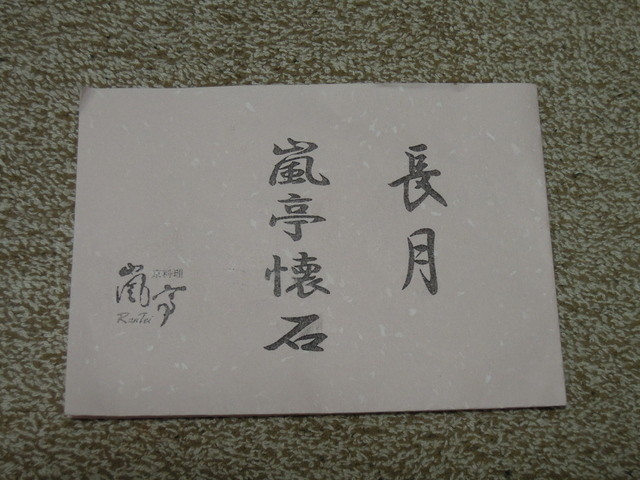 長月
嵐亭懐石
京料理
嵐亭
RanTei